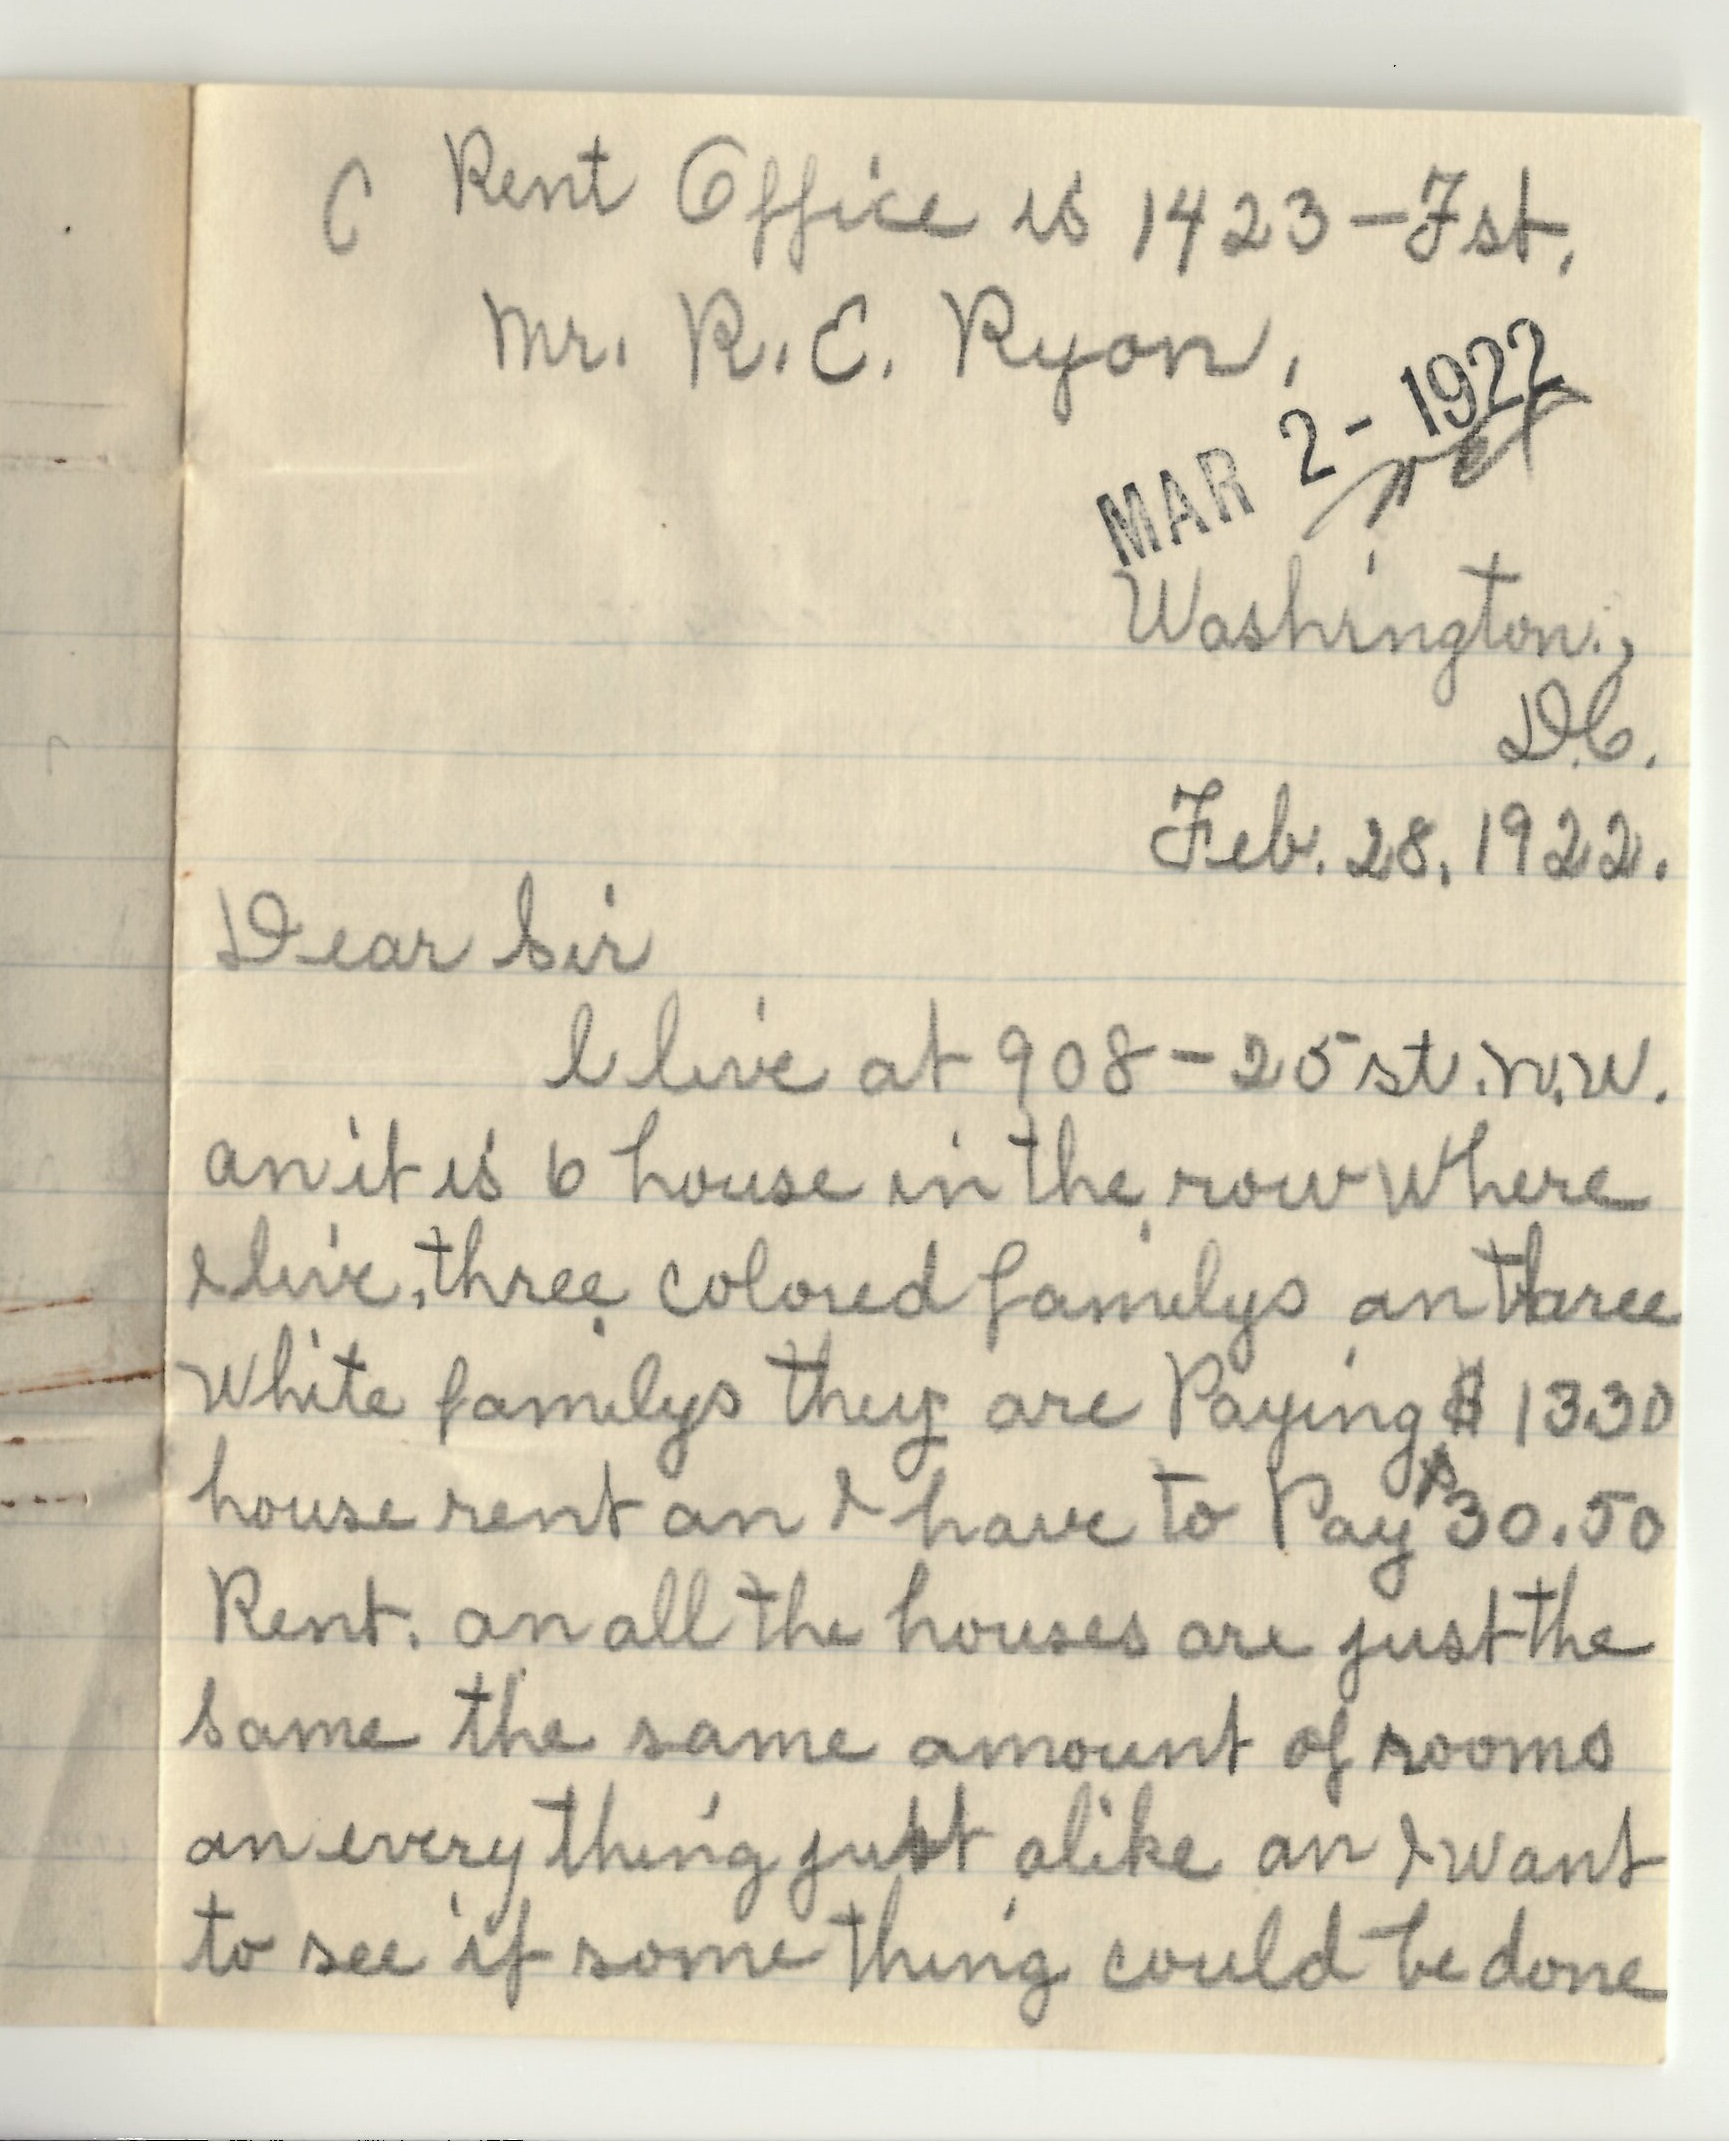 C Rent Office is 1423 – F st.
Mr. R. E. Ryon,
MAR 2 - 1922
Washington.,
D.C.
Feb. 28, 1922.
Dear Sir
I live at 908 – 25 st. N.W.
an it is 6 house in the row where
I live, three colored familys an three
White familys they are Paying $ 13.30
house rent an I have to Pay $30.50
Rent. an all the houses are just the
same the same amount of rooms
an every thing just alike an I want
to see if some thing could be done